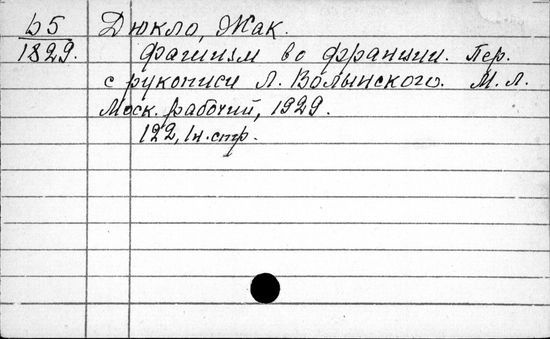 Б5 Дюкло, Жак.
1829. Фашизм во Франции. Пер.
с рукописи Л. Волынского. М. Л.
Моск. рабочий, 1929.
122, 1н. стр.